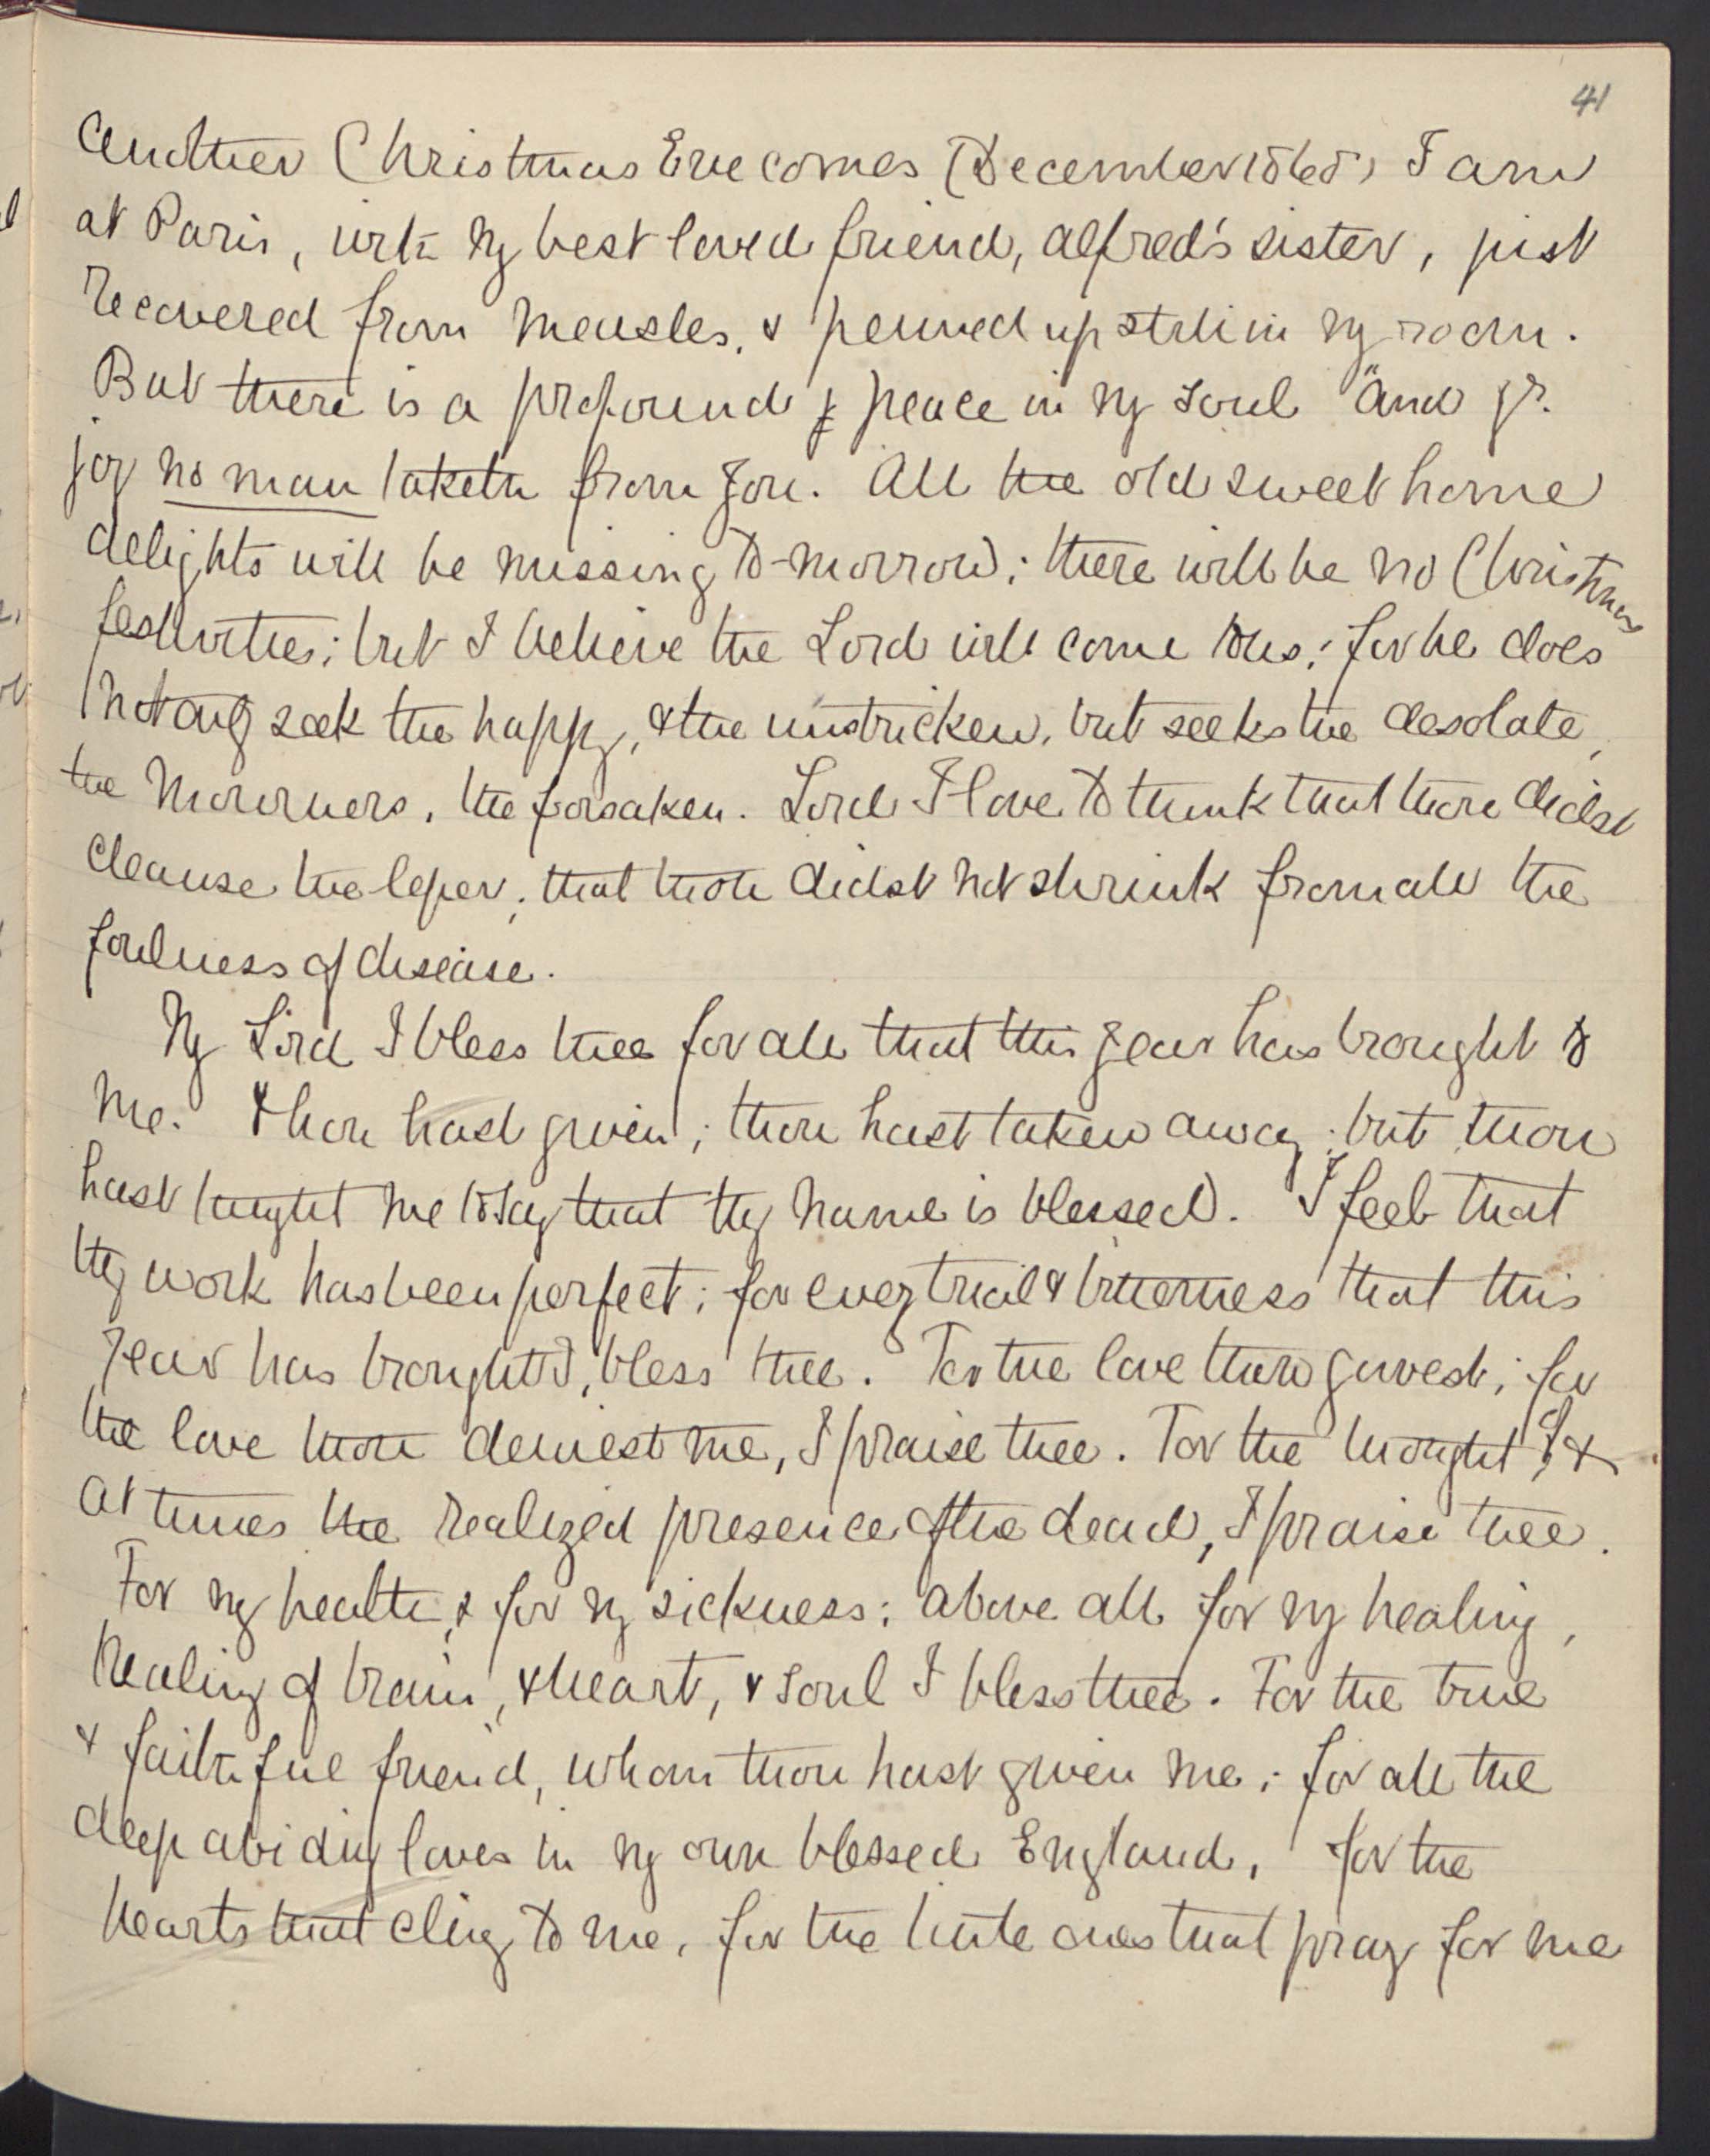 41
Another Christmas Eve comes (December 1865) I am
at Paris, with my best loved friend, Alfred's sister, just
recovered from measles, & penned up still in my room.
But there is a profound peace in my soul "And yr.
joy no man taketh from you. All the old sweet home
delights will be missing to-morrow; there will be no Christmas
festivities; but I believe the Lord will come to us; for he does
not only seek the happy, & the unstricken, but seeks the desolate,
the mourners, the forsaken. Lord I love to think that thou didst
cleanse the leper; that thou didst not shrink from all the
foulness of disease.
My Lord I bless thee for all that this year has brought to
me. Thou hast given; thou hast taken away; but thou
hast taught me to say that thy name is blessed. I feel that
thy work has been perfect; for every trial & bitterness that this
year has brought I bless thee. For the love thou gavest; for
the love thou deniest me, I praise thee. For the thought of, &
at times the realized presence of the dead, I praise thee.
For my health, & for my sickness; above all for my healing,
healing of brain, & heart, & soul I bless thee. For the true
& faithful friend, whom thou hast given me; for all the
deep abiding loves in my own blessed England, for the
hearts that cling to me, for the little ones that pray for me